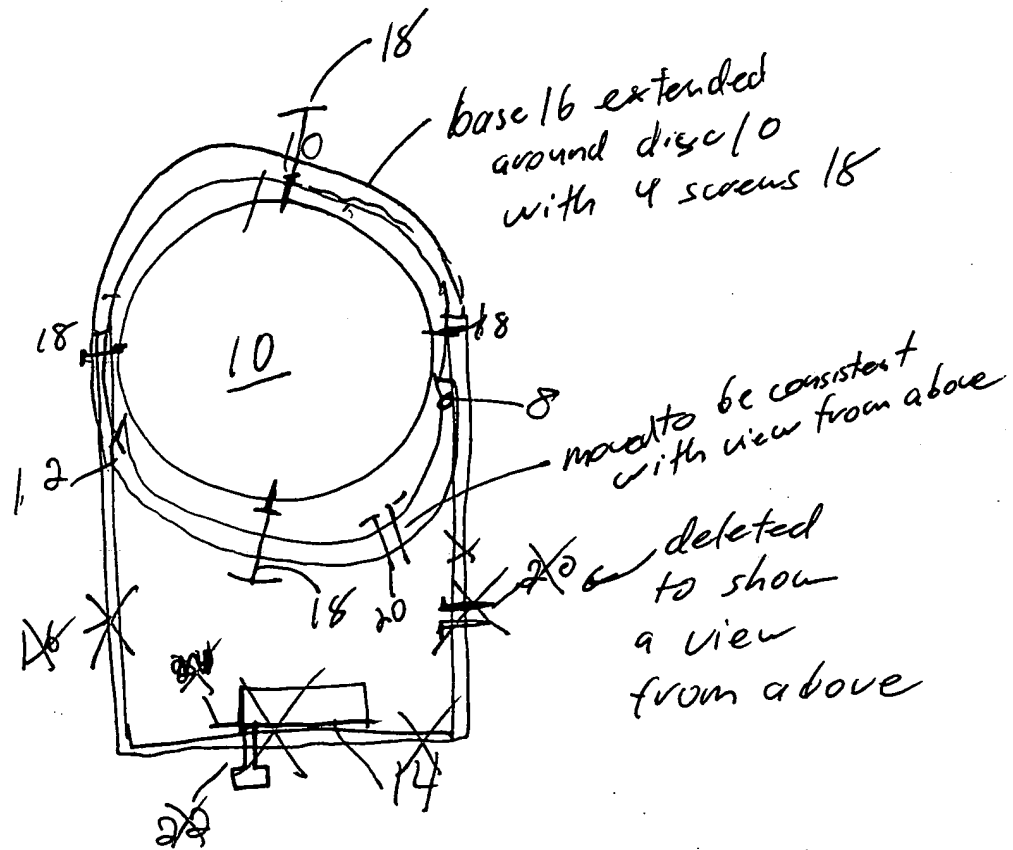 18
base 16 extended
around disc 10
with 4 screws 18
10
18
18
10
8
moved to be consistent
with view from above
12
18
20
20
deleted
to show
a view
from above
16
14
22